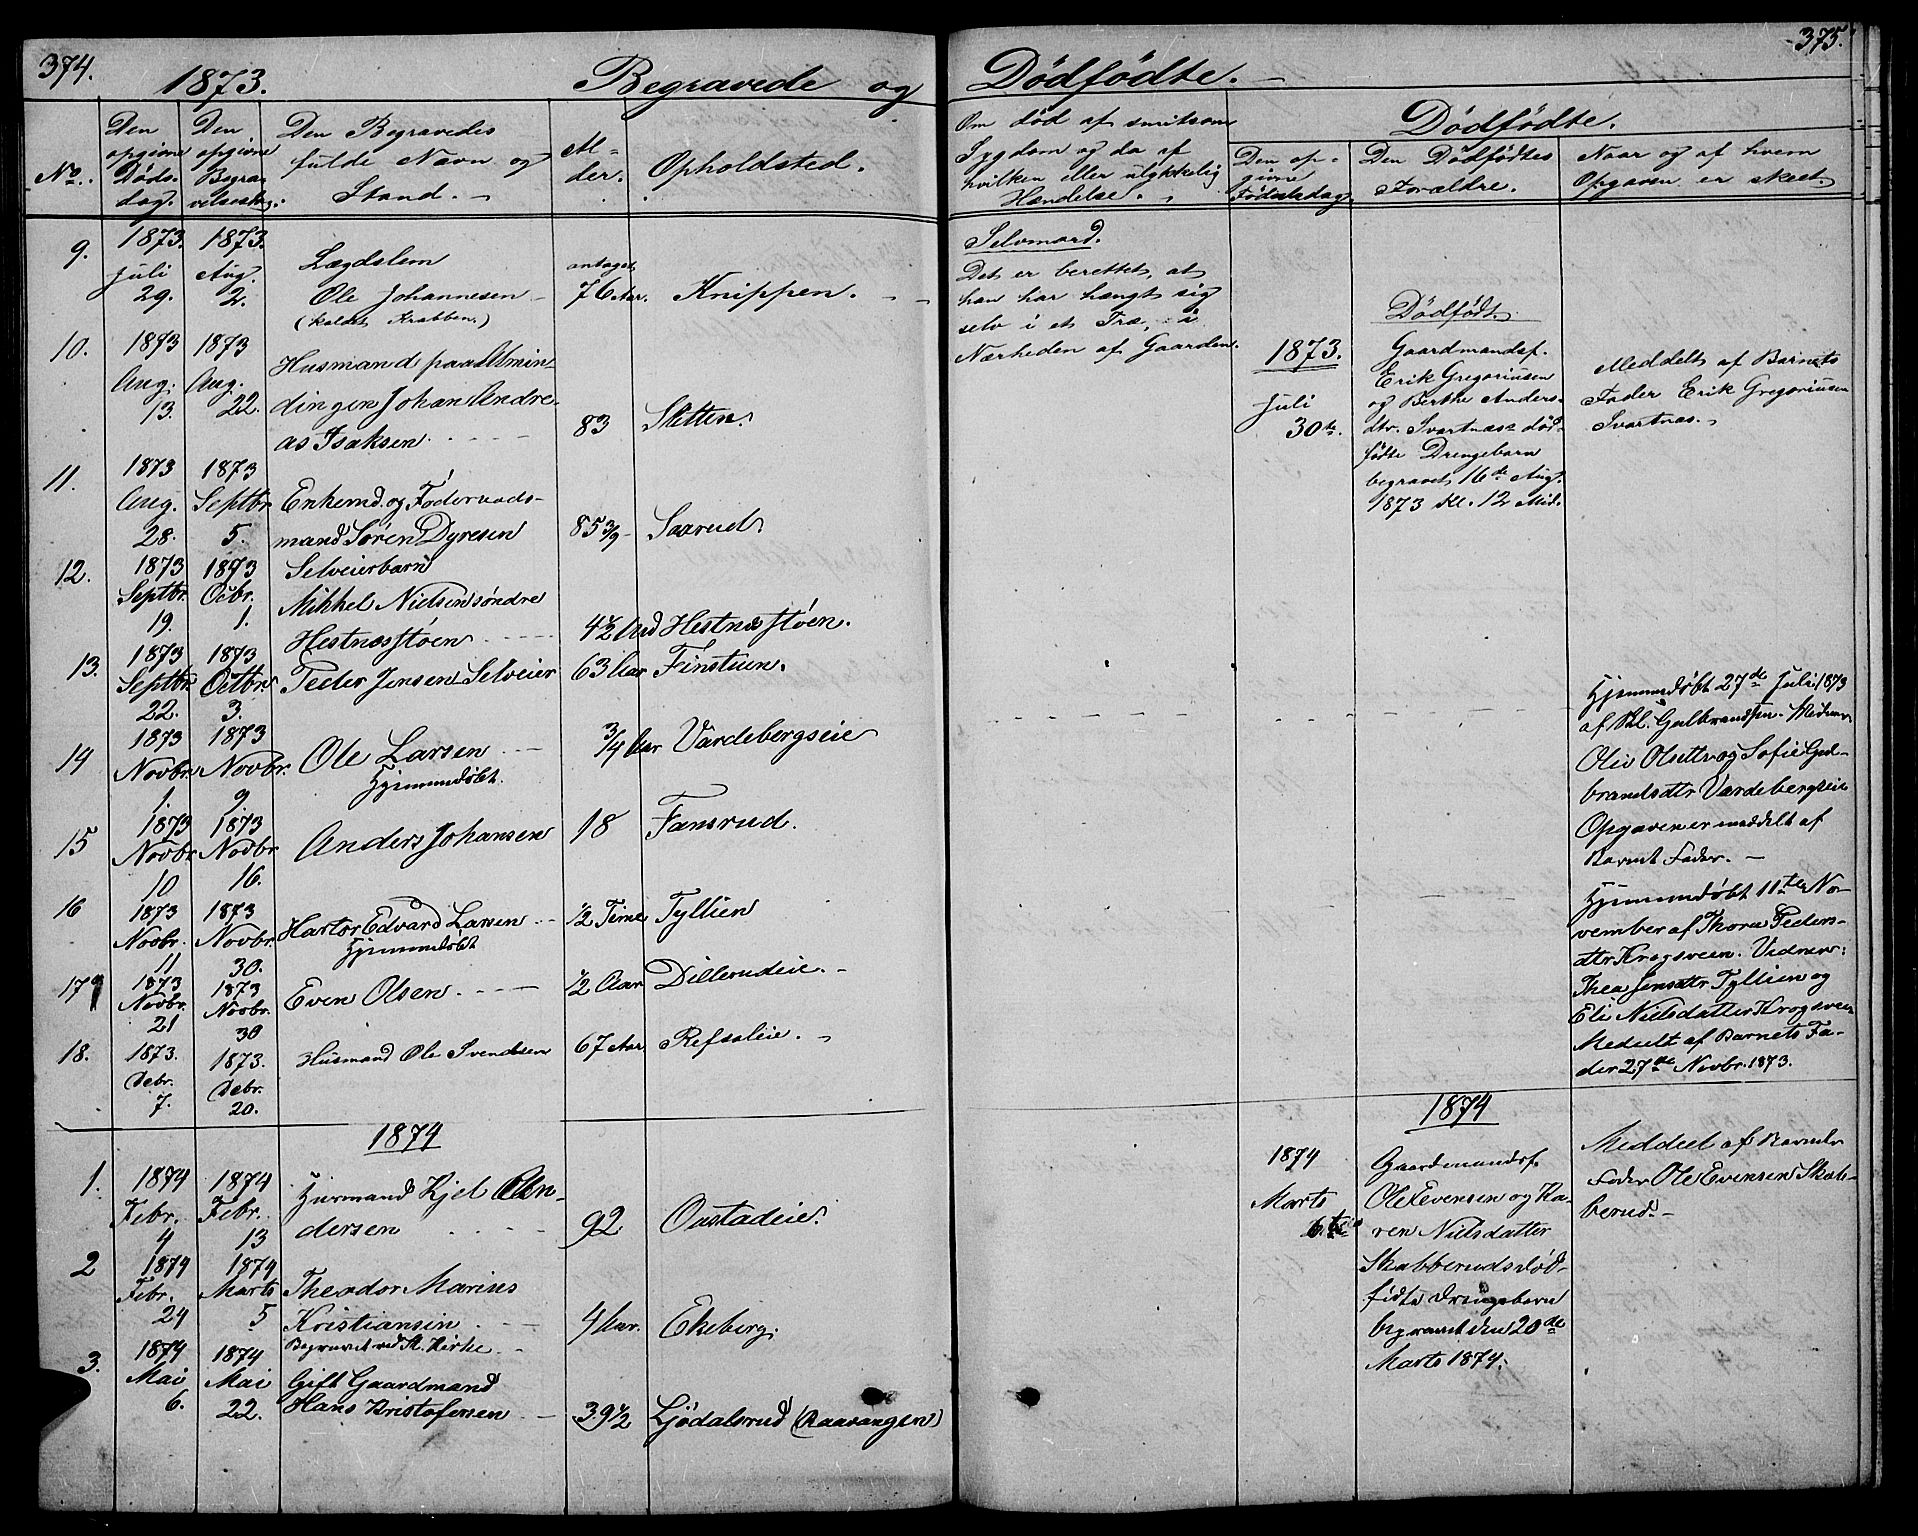 374.
1873.
Begravede og
No.
Den opgivne Dødsdag.
Den opgivne Begravelsesdag.
Den Begravedes fulde Navn og Stand.
Alder.
Opholdsted.
9.
1873. Juli 29.
1873. Aug. 2.
Lægdslem
Ole Johannesen
(kaldet Krabben.)
antaget
76 Aar.
Knippen.
10.
1873 Aug. 13.
1873 Aug. 22.
Husmand paa Almin-
dingen Johan Andre-
as Isaksen.
83
Sletten.
11.
1873 Aug. 28.
1873 Septbr. 5.
Enkemd. og Føderaads-
mand Søren Dyresen
85 3/9
Saarud.
12.
1873 Septbr. 19.
1873 Octbr. 1.
Selveierbarn
Mikkel Nielsen søndre
Hestnæsstøen
4 1/2
Hestnæsstøen.
13.
1873 Septbr. 22.
1873 Octbr. 3.
Peder Jensen Selveier
63 Aar
Finstuen.
14
1873 Novbr. 1.
1873 Novbr. 9.
Ole Larsen
Hjemmedøbt.
3/4 Aar
Vardebergseie
15
1873 Novbr. 10
1873 Novbr. 16.
Anders Johansen
18
Fansrud.
16
1873 Novbr. 11
1873 Novbr. 30.
Edvard Larsen
Hjemmedøbt
1/2 Time
Tyllien
17
1873 Novbr. 21
1873 Novbr. 30
Even Olsen.
1/2 Aar
Dillerudeie.
18.
1873. Debr. 7.
1873. Debr. 20.
Husmand Ole Svendsen
67 Aar
Refsaleie.
1874
1.
1874 Febr. 4
1874 Febr. 13
Husmand Kjel An-
dersen
92
Oustadeie.
2
1874 Febr. 24
1874 Marts 5
Theodor Marius
Kristiansen
Begravet ved St. Kirke.
4 Aar.
Ekeberg.
3.
1874 Mai 6.
1874 Mai 22.
Gift Gaardmand
Hans Kristofersen
39 1/2
Ljødalsrud (Raavangen)
375.
Dødfødte.
Om død af smitsom
Sygdom og da af
hvilken eller ulykkelig
Hændelse.
Dødfødte.
Den opgivne Fødselsdag
Den Dødfødtes Forældre.
Naar og af hvem
Opgaven er skeet.
Selvmord.
Det er berettet, at
han har hængt sig
selv i et Træ, i
Nærheden af Gaarden.
1873.
Juli
30te.
Dødfødt.
Gaardmandsf.
Erik Gregoriusen
og Berthe Anders-
dtr. Svartnæs død-
fødte Drengebarn
begravet 16de Aug.
1873 Kl. 12 Mid.
Meddelt af Barnets
Fader Erik Gregoriusen
Svartnæs.
Hjemmedøbt 27de Juli 1873
af Gulbrandsen.
og Sofie Gul-
brandsdtr Vardebergseie
Opgaven er meddelt af
Barnets Fader.
Hjemmedøbt 11te No-
vember af Thora Peders-
dtr Krogsveen. Vidner:
Thea Jensdtr Tyllien og
Eli Nielsdatter Krogsveen
Meddelt af Barnets Fa-
der 27de Novbr. 1873.
1874
1874
Marts
6te
Gaardmandsf.
Ole Evensen og Ka-
ren Nielsdatter
Skabberuds død-
fødte Drengebarn
begravet den 20de
Marts 1874.
Meddelt af Barnets
Fader Ole Evensen Skab-
berud.